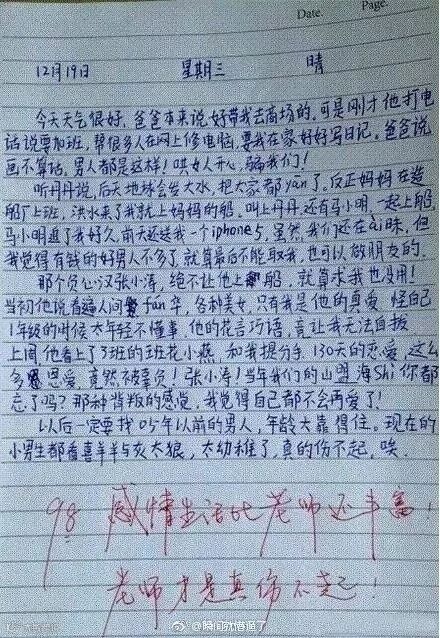 Date.    Page.
12月19日    星期三    晴
今天天气很好，爸爸本来说好带我去商场的，可是刚才他打电
话说要加班，帮很多人在网上修电脑，要我在家好好写日记。爸爸说
画不算话，男人都是这样！哄女人开心，骗我们！
听丹丹说，后天地球会发大水，把大家都yān了，反正妈妈在造
船厂上班，洪水来了我就上妈妈的船，叫上丹丹，还有马小明，一起上船，
马小明追了我好久，前天还送我一个iphone5，虽然我们还在ài昧，但
我觉得有钱的好男人不多了，就算最后不能取我，也可以做朋友的。
那个负心汉张小涛，绝不让他上船，就算求我也没用！
当初他说看遍人间fán华，各种美女，只有我是他的真爱，怪自己
1年级的时候太年轻不懂事，他的花言巧语，竟让我无法自拔
上周他看上了3班的班花小燕，和我提分手，130天的恋爱，这么
多恩爱，竟然不被辜负！张小涛！当年我们的山盟海Shì你都
忘了吗？那种背叛的感觉，我觉得自己都不会再爱了！
以后一定要找05年以前的男人，年龄大靠得住。现在的
小男生都看喜羊羊与灰太狼，太幼稚了，真的伤不起，唉
98 感情生活比老师还丰富！
老师才是真伤不起！
@瞬间就悟道了